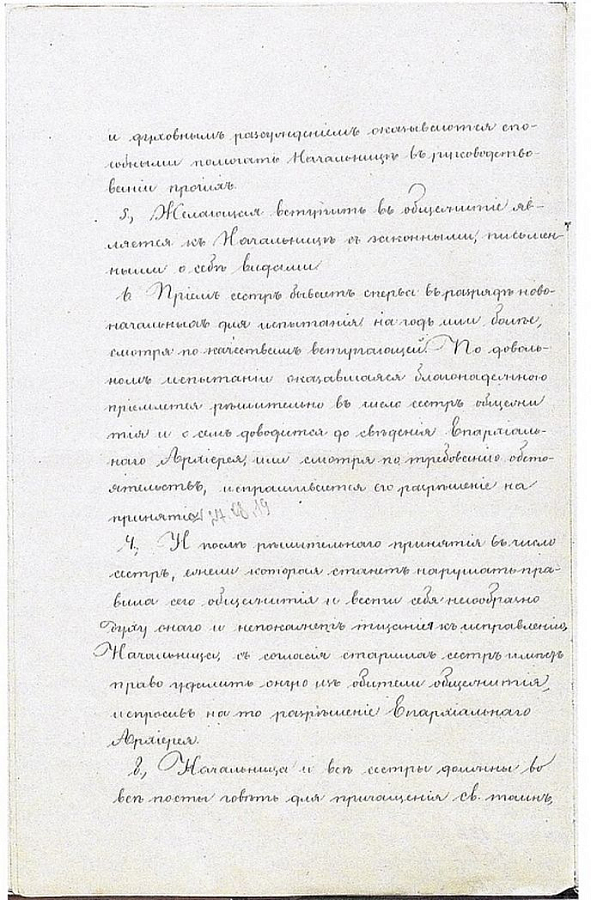 и духовнымъ разсужденіемъ оказываются спо-
собными помогать Начальницѣ въ руководство-
ваніи прочихъ.
5, Желающая вступить въ общежитіе яв-
ляется къ Начальницѣ съ законными, письмен-
ными о себѣ видами
6. Пріемъ сестръ бываетъ сперва въ разрядъ ново-
начальныхъ для испытанія на годъ или болѣе,
смотря по качествамъ вступающей. По доволь-
номъ испытаніи оказавшаяся благонадежною
пріемлется рѣшительно въ число сестръ общежи
тія и о семъ доводится до свѣденія Епархіаль-
наго Архіерея, или смотря по требованію обсто-
ятельствъ, испрашивается его разрѣшеніе на
принятіе
7, И послѣ рѣшительнаго принятія въ число
сестръ, ежели которая станетъ нарушать пра-
вила сего общежитія и вести себя несообразно
духу онаго и непокажетъ тщанія къ исправленію,
Начальница, съ согласія старшихъ сестръ имѣетъ
право удалить оную изъ обители общежитія,
испросивъ на то разрѣшеніе Епархіальнаго
Архіерея.
8, Начальница и всѣ сестры должны во
всѣ посты говѣть для причащенія св. таинъ,